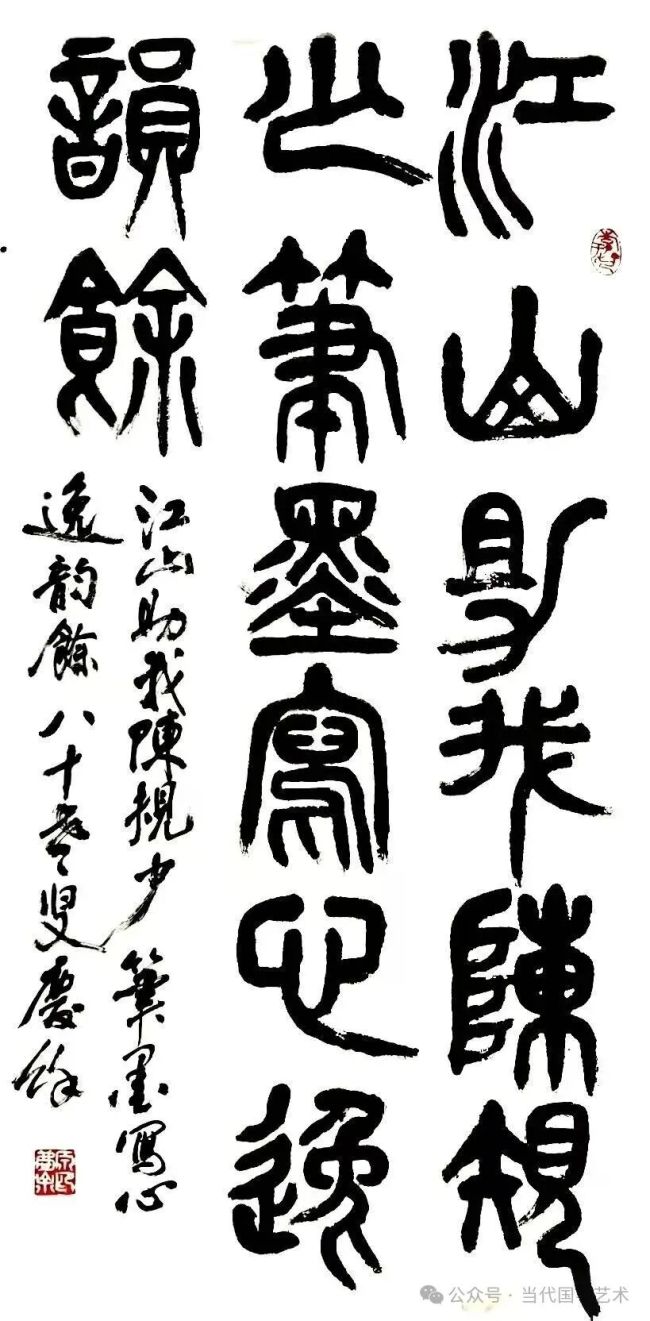 江山助我陳規
少筆墨寫心逸
韻餘
江山助我陳規少 筆墨寫心
逸韵餘 八十老叟慶餘
公众号 · 当代国艺术